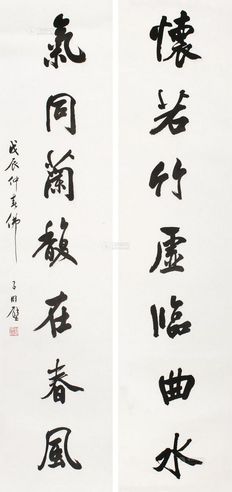 懷若竹虛臨曲水
氣同蘭馥在春風
戊辰仲春佛